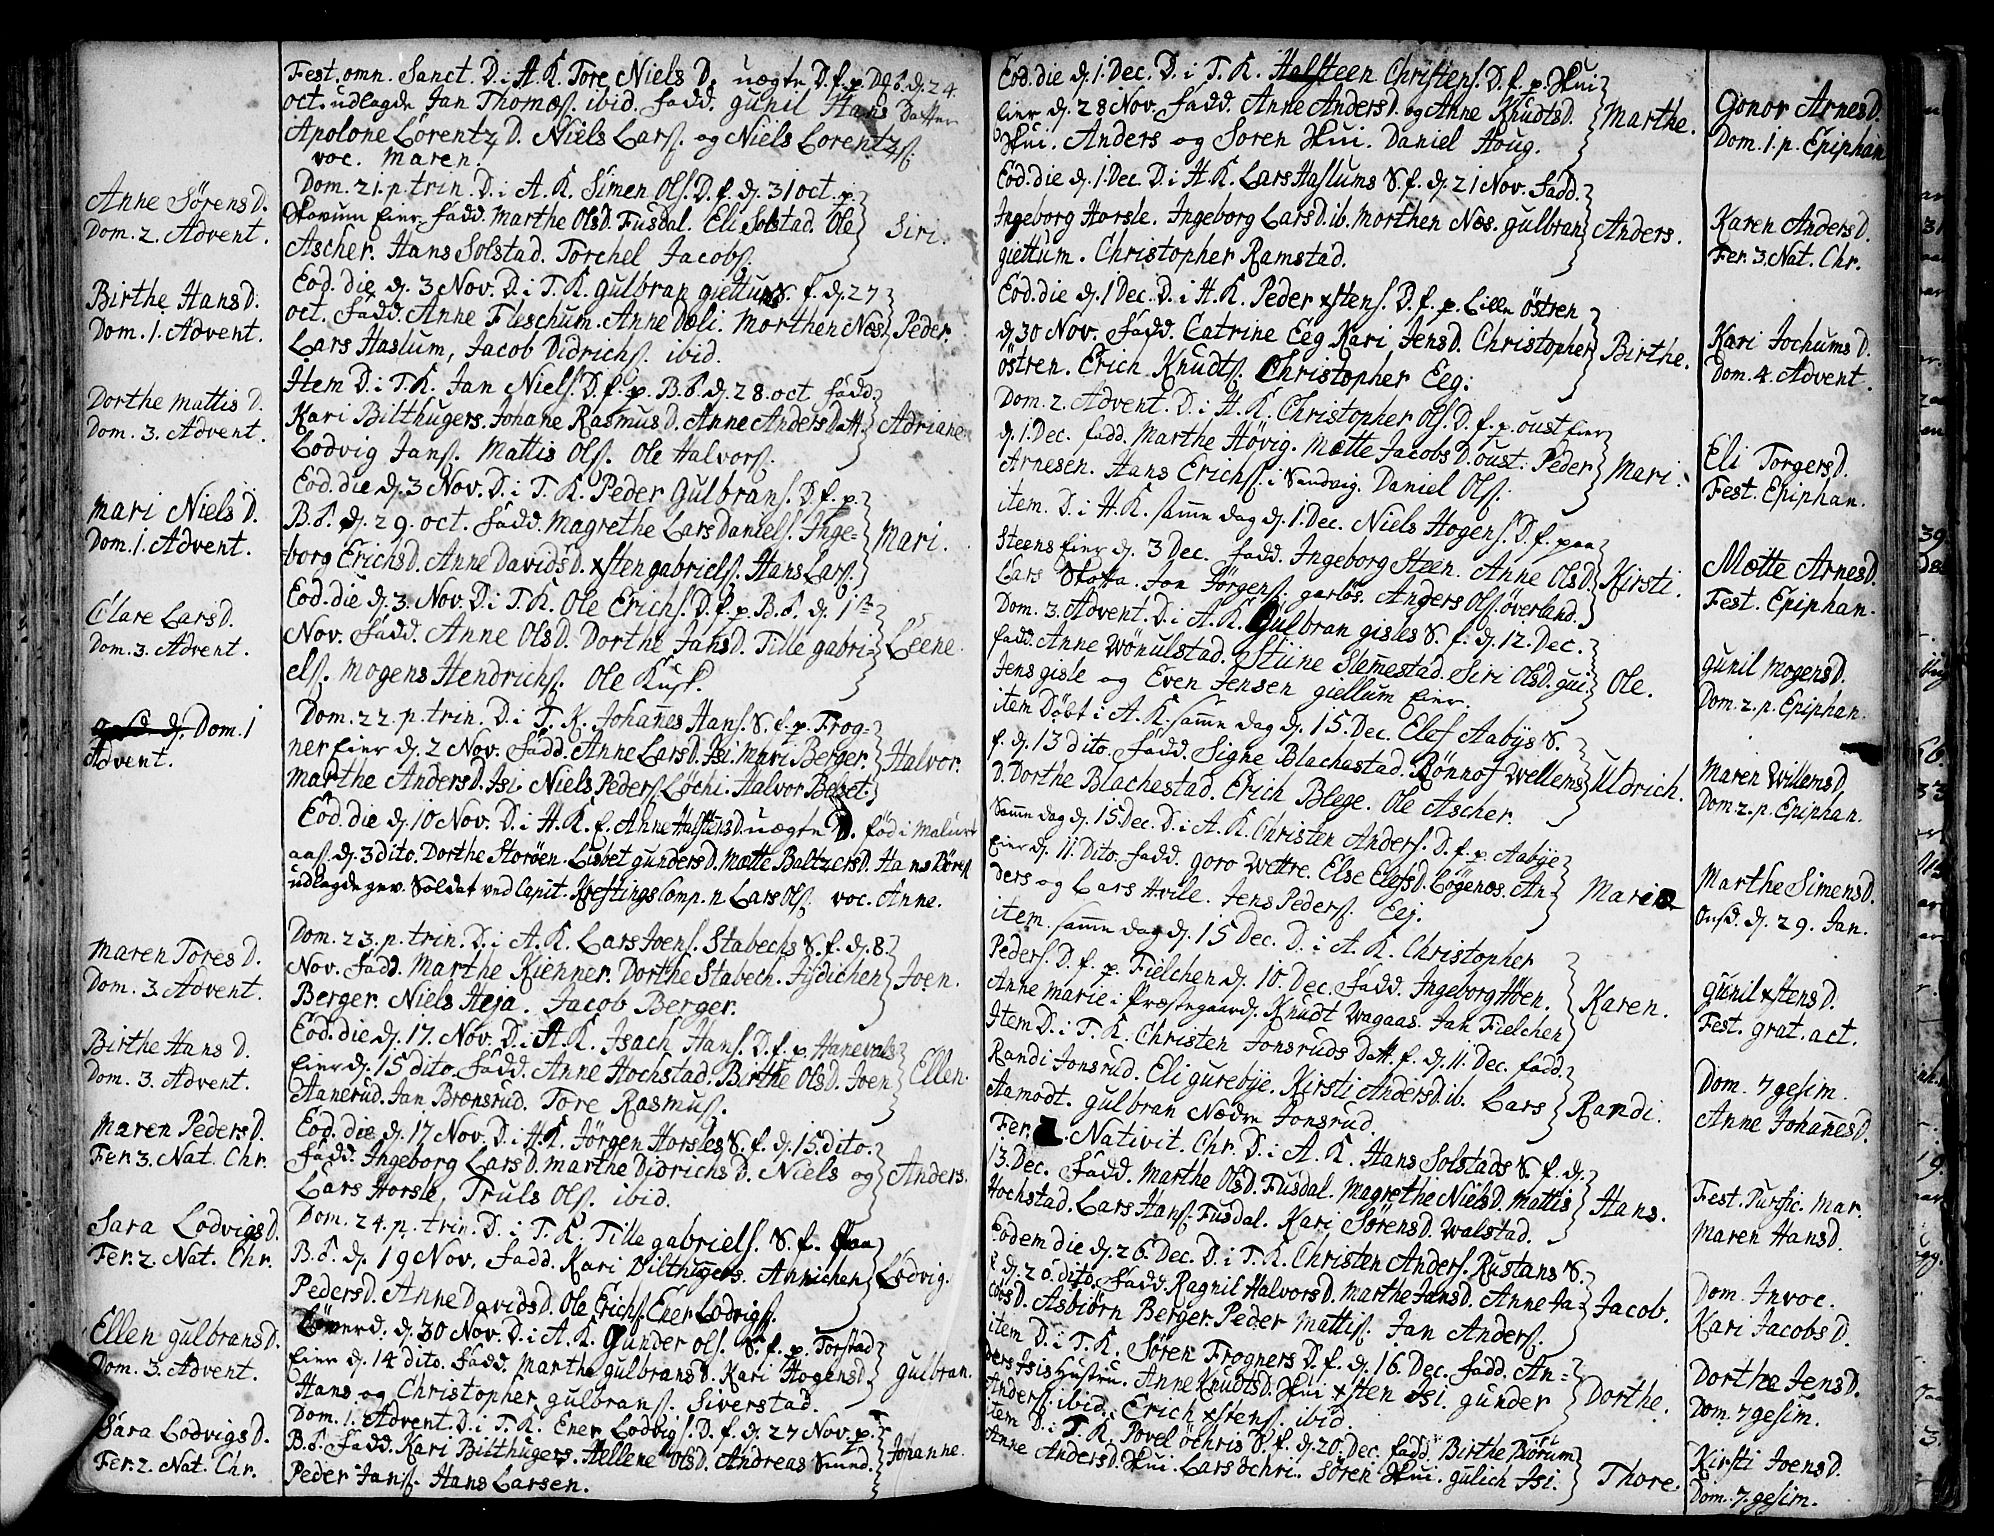 Fest. omn. Sanct. D. i A. K. Tore Niels D. uægte D. f. p. Bß. d. 24
oct. udlagde Jan Thomæs. ibid. fadd. gunil Hans Datter
Apolone Lörentz D. Niels Larss. og Niels Lorentzs.
voc. Maren.
Anne Sörens D.
Dom. 2. Advent.
Dom. 21. p. trin. D. i A. K. Simen Ols. D. f. d. 31 oct. p.
Skovum Eier. fadd. Marthe Ols D. Fusdal. Eli Solstad. Ole
Ascher. Hans Solstad. Torchel Jacobs.
Siri.
Birthe Hans D.
Dom. 1. Advent.
Eod. die d. 3 Nov. D. i T. K. gulbran giettums S. f. d. 27
oct. fadd. Anne Fleschum. Anne Dæli. Morthen Næs.
Lars Haslum, Jacob Didrichs. ibid.
Peder.
Dorthe Mattis D.
Dom. 3. Advent.
Item D. i T. K. Jan Niels. D. f. p. B. ß. d. 28. oct fadd.
Kari Bilthugers. Johane Rasmus D. Anne Anders Datt.
Lodvig Jans. Mattis Ols. Ole Halvors.
Adriane
Mari Niels D.
Dom. 1. Advent.
Eod. die d. 3 Nov. D. i T. K. Peder Gulbrans. D. f. p.
B. ß. d. 29. oct. fadd. Magrethe Lars Daniels. Inge-
borg Erichs D. Anne Davids D. xsten gabriels. Hans Lars.
Mari.
Clare Lars D.
Dom. 3. Advent.
Eod. die d. 3. Nov. D. i T. K. Ole Erichs. D. f. p. B. ß. d. 1ste
Nov. fadd. Anne Ols D. Dorthe Jans D. Tille gabri-
els. Mogens Hendrichs. Ole Kusk.
Leene.
Dom. 1
Advent.
Dom. 22. p. trin. D. i T. K. Johannes Hans. S. f. p. Frog-
ner Eier d. 2 Nov. fadd. Anne Lars D. Isi. Mari Berger.
Marthe Anders D. Isi. Niels Peders. Löchi. Halvor Belset.
Halvor.
Eod. die d. 10 Nov. D. i H. K. f. Anne Halstens D. uægte D. föd i Malurt
aas d. 3 dito. Dorthe Storöen. Lisbet gunders D. Mætte Baltzers D. Hans
udlagde gev. Soldat ved Capit. Kreftings Comp. n Lars Ols. voc. Anne.
Maren Tores D.
Dom. 3. Advent.
Dom. 23. p. trin. D. i A. K. Lars Joens. Stabechs S. f. d. 8
Nov. fadd. Marthe Kienner. Dorthe Stabech. Fisdichen
Berger. Niels Heja. Jacob Berger.
Joen.
Birthe Hans D.
Dom. 3. Advent.
Eod. die d. 17. Nov. D. i A. K. Isach Hans. D. f. p. Hanevals
Eier d. 15 dito. fadd. Anne Hochstad. Birthe Ols D. Joen
Aanerud. Jan Brænsrud. Tore Rasmus.
Ellen.
Maren Peders D.
Fer. 3. Nat. Chr.
Eod. die d. 17 Nov. D. i H. K. Jörgen Horsles S. f. d. 15 dito.
fadd. Ingeborg Lars D. Marthe Didrichs D. Niels og
Lars Horsle, Truls Ols. ibid.
Anders.
Sara Lodvigs D.
Fer. 2. Nat. Chr.
Dom. 24. p. trin. D. i T. K. Tille gabriels. S. f. paa
B. ß. d. 19 Nov. fadd. Kari Bilthugers. Annichen
Peders D. Anne Davids D. Ole Erichs. Ener Lodvigs.
Lodvig.
Ellen gulbrans D.
Dom. 3. Advent.
Löverd. d. 30 Nov. D. i A. K. Gunder Ols. S. f. p. Torstad
Eier d. 14 dito. fadd. Marthe gulbrans D. Kari Hogens D.
Hans og Christopher gulbrans. Siverstad.
gulbran.
Sara Lodvigs D.
Fer. 2. Nat. Chr.
Dom. 1. Advent. D. i T. K. Ener Lodvigs. D. f. d. 27 Nov. p.
B. ß. fadd. Kari Bilthugers. Hellene Ols D. Andreas Smed.
Peder Jans. Hans Larsen.
Johanne.
Eod. die d. 1. Dec. D. i T. K. Halsteen Christens. D. f. p. Hui
Eier d. 28 Nov. fadd. Anne Anders D. og Anne Knudts D.
Hui. Anders og Soren Hui. Daniel Houg.
Marthe.
Gonor Arnes D.
Dom. 1. p. Epiphan
Eod. die d. 1. Dec. D. i H. K. Lars Haslums S. f. d. 21 Nov. fadd.
Ingeborg Horsle. Ingeborg Lars D. ib. Morthen Næs. gulbran
giettum. Christopher Ramstad.
Anders.
Karen Anders D.
Fer. 3. Nat. Chr.
Eod. die d. 1 Dec. D. i H. K. Peder xstens. D. f. p. Lille östren
d. 30 Nov. fadd. Catrine Eeg Kari Jens D. Christopher
östren. Erich Knudts. Christopher Eeg.
Birthe.
Kari Jochums D.
Dom. 4. Advent.
Dom. 2. Advent. D. i H. K. Christopher Ols. D. f. p. oust Eier
d. 1. Dec. fadd. Marthe Hövig. Mætte Jacobs D. oust. Peder
Arnesen. Hans Erichs. i Sandvig. Daniel Ols.
Mari.
Eli Torgers D.
Fest. Epiphan.
item. D. i H. K. samme dag d. 1. Dec. Niels Hogens. D. f. paa
Steens Eier d. 3 Dec. fadd. Ingeborg Steen. Anne Ols D.
Lars Skotta. Jon Jörgens. garlös. Anders Ols. överland.
Kirsti.
Mætte Arnes D.
Fest. Epiphan.
Dom. 3. Advent. D. i A. K. Gulbran gisles S. f. d. 12. Dec.
fadd. Anne Wönulstad. Stiine Slemestad. Siri Ols D. gui
Jens gisle og Even Jensen giellum Eier.
Ole.
gunil Mogens D.
Dom. 2. p. Epiphan.
item Döbt i A. K. samme dag d. 15. Dec. Elef Aabÿs S.
f. d. 13 dito. fadd. Signe Blachestad. Rönnof Wellems
D. Dorthe Blachestad. Erich Blege. Ole Ascher.
Uldrich.
Maren Willems D.
Dom. 2. p. Epiphan.
Samme dag d. 15. Dec. D. i A. K. Christen Anders. D. f. p. Aabÿe
Eier d. 11. Dito. fadd. goro Wettre. Else Elefs D. Lögenæs. An-
ders og Lars Hvile. Jens Peders. Eej.
Maria
Marthe Simens D.
Onsd. d. 29. Jan.
item samme dag d. 15 Dec. D. i A. K. Christopher
Peders. D. f. p. Fielchen d. 10. Dec. fadd. Ingeborg Höen.
Anne Marie i Præstegaard. Knudt Wagaas. Jan Fielchen
Karen.
gunil xstens D.
Fest. grat. act.
Item D. i T. K. Christen Jonsruds Datt. f. d. 11. Dec. fadd.
Randi Jonsrud. Eli gurebÿe. Kirsti Anders D. ib. Lars
Aamodt. gulbran Nædre Jonsrud.
Randi.
Dom. 7 gesim.
Anne Johannes D.
Fer. 2. Nativit. Chr. D. i A. K. Hans Solstads S. f. d.
13. Dec. fadd. Marthe Ols D. Fusdal. Magrethe Niels D. Mattis
Hochstad. Lars Hans. Fusdal. Kari Sörens D. Walstad.
Hans.
Fest. Purific. Mar.
Maren Hans D.
Eodem die d. 26 Dec. D. i T. K. Christen Anders. Rustans S.
f. d. 20. dito. fadd. Ragnil Halvors D. Marthe Jans D. Anne Ja-
cobs D. Asbiörn Berger. Peder Mattis. Jan Anders.
Jacob.
Dom. Invoc.
Kari Jacobs D.
item D. i T. K. Sören Frogners D. f. d. 16. Dec. fadd. An-
ders Isis Hustru. Anne Knudts D. Hui xsten Isi. gunder
Anders. ibid. Erich xstens. ibid.
Dorthe.
Dorthe Jens D.
Dom. 7 gesim.
item D. i T. K. Povel öchris S. f. d. 20. Dec. fadd. Birthe Börum
Anne Anders D. Hui. Lars öchri. Sören Hui. gulich Isi.
Thore.
Kirsti Joens D.
Dom. 7. gesim.